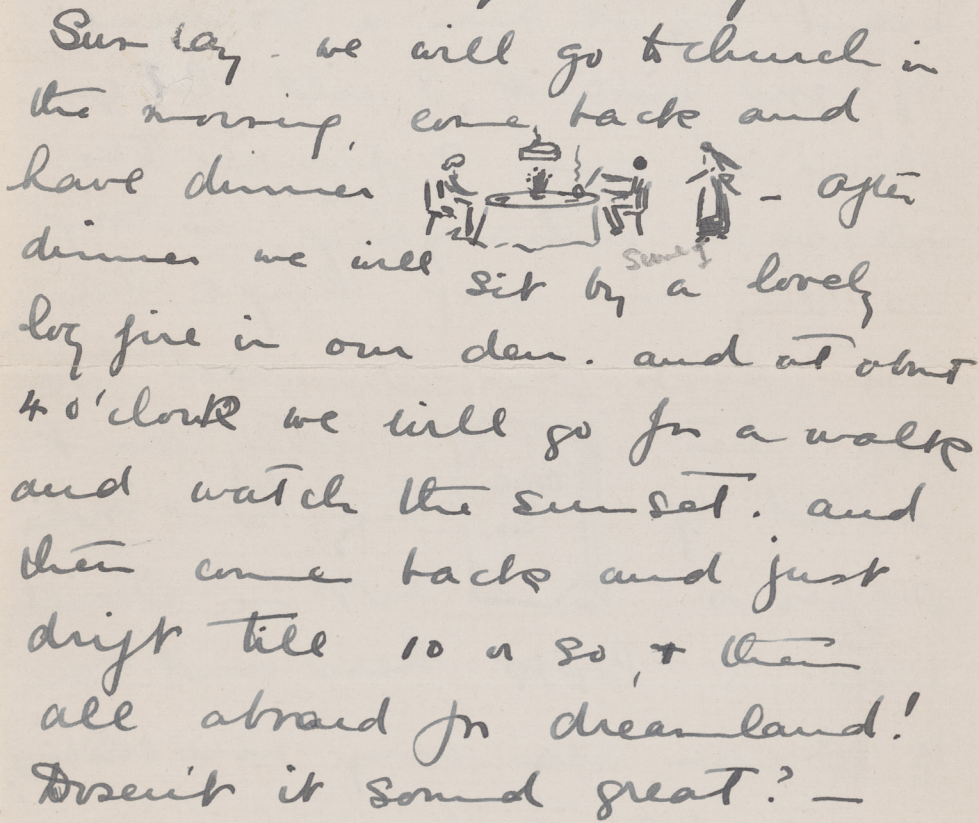 Sunday - we will go to church in
the morning, come back and
have dinner - after
dinner we will sit by a lovely
log fire in our den. and at about
4 o'clock we will go for a walk
and watch the sunset. and
then come back and just
drift till 10 or so, + then
all aboard for dreamland!
Dosen't it sound great? —